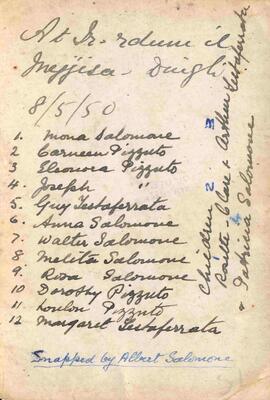 At Ir-rdum il
Mejjisa - Dingli
8/5/50
1. Mona Salomone
2 Carmeen Pizzuto
3 Eleonora Pizzuto
4. Joseph "
5. Guy Testaferrata
6. Anna Salomone
7. Walter Salomone
8 Melita Salomone
9. Rosa Salomone
10 Dorothy Pizzuto
11 Loulou Pizzuto
12 Margaret Testaferrata
Snapped by Albert Salomone
Children 2 3
Rosette Clare & Arthur Testaferrata
& Patricia Salomone